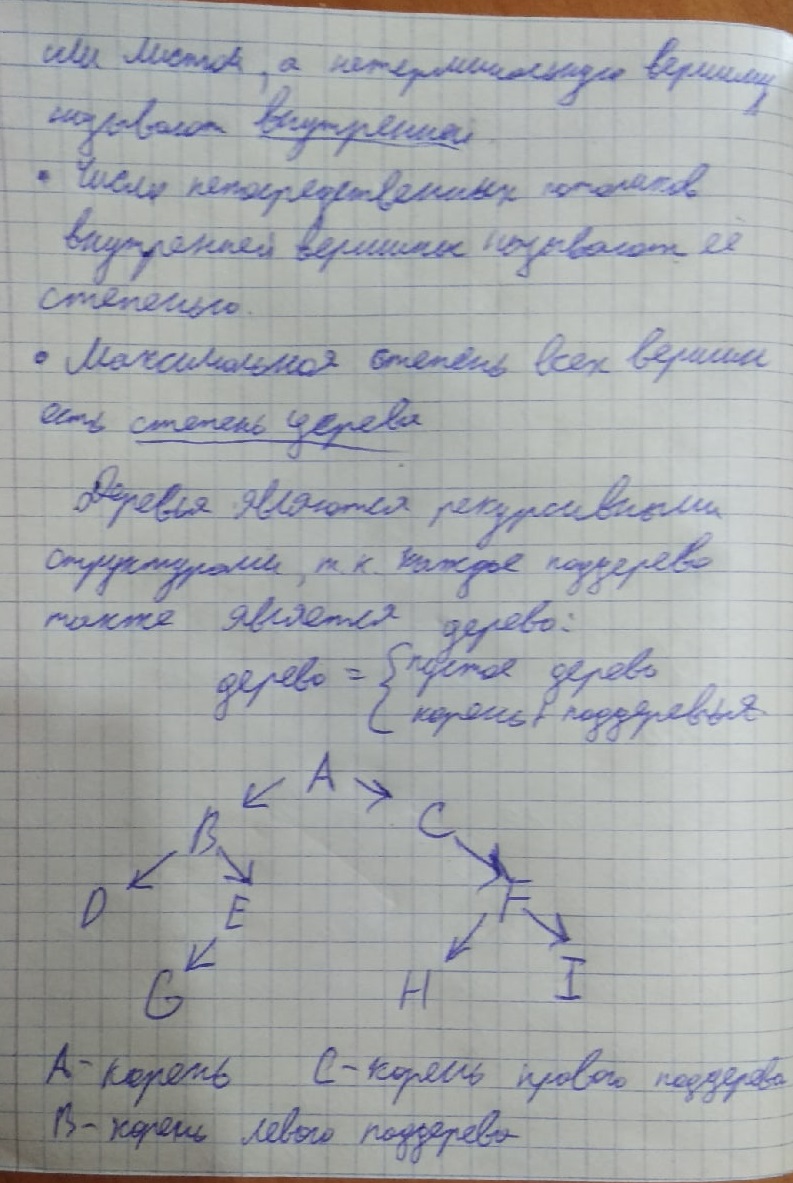 или листом, а нетерминальную вершину
называют внутренней.
• Число непосредственных потомков
внутренней вершины называют её
степенью.
• Максимальная степень всех вершин
есть степень дерева
Деревья являются рекурсивными
структурами, т.к. каждое поддерево
также является дерево:
дерево = { пустое дерево
корень + поддеревья
A
B C
D E F
G H I
A - корень C - корень правого поддерева
B - корень левого поддерева